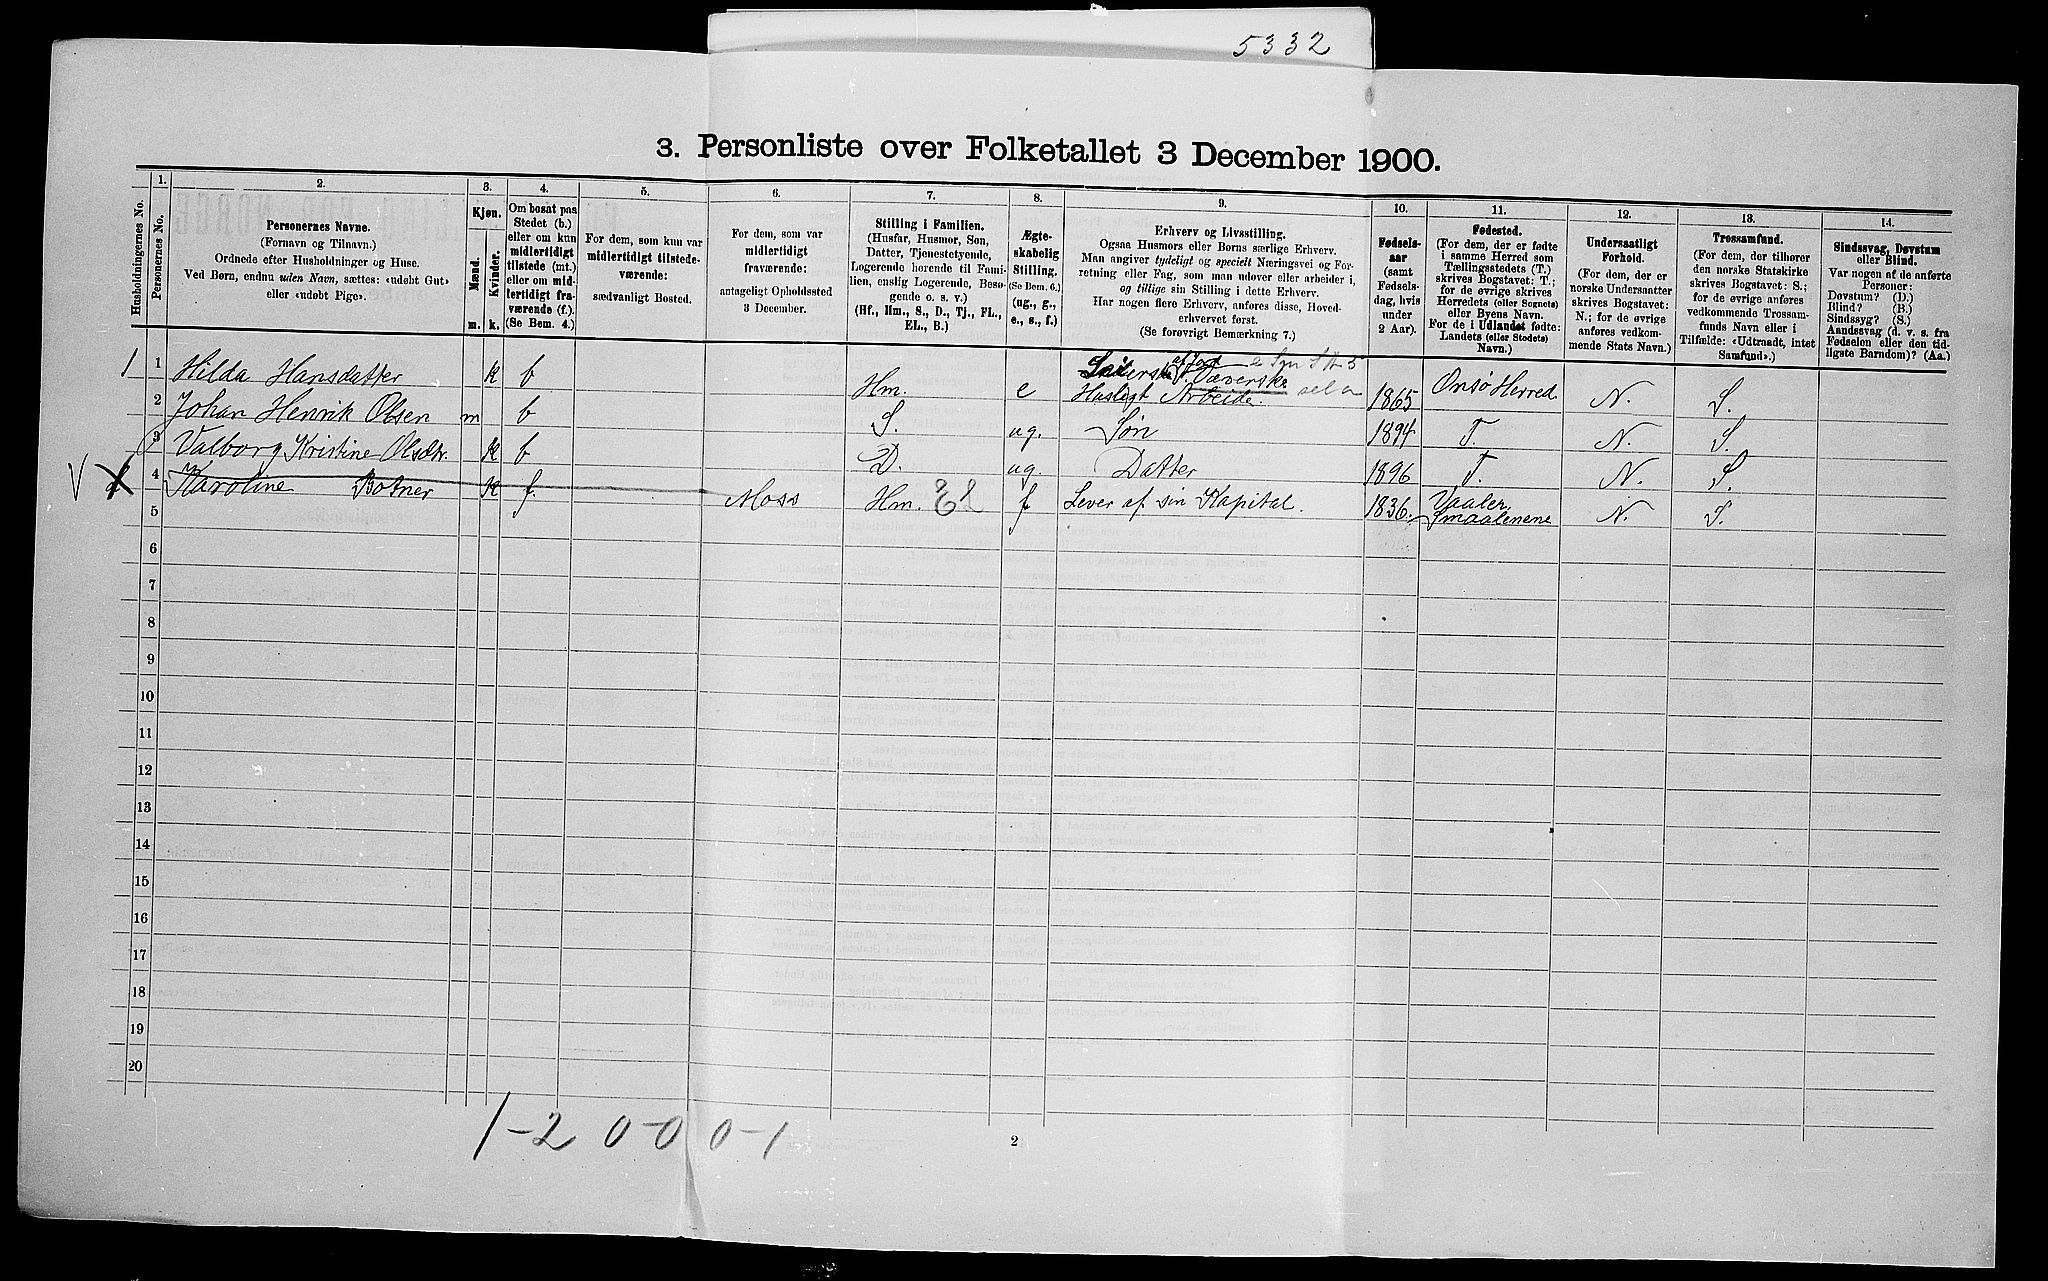 5332
3. Personliste over Folketallet 3 December 1900.
1. 2. 3. 4. 5. 6. 7. 8. 9. 10. 11. 12. 13. 14.
Husholdningernes No.
Personernes No.
Personernes Navne.
(Fornavn og Tilnavn.)
Ordnede efter Husholdninger og Huse.
Ved Børn, endnu uden Navn, sættes: «udøbt Gut»
eller «udøbt Pige».
Kjøn.
Mænd.
Kvinder.
m. k.
Om bosat paa
Stedet (b.)
eller om kun
midlertidigt
tilstede (mt.)
eller om mid-
lertidigt fra-
værende (f.).
(Se Bem. 4.)
For dem, som kun var
midlertidigt tilstede-
værende:
sædvanligt Bosted.
For dem, som var
midlertidigt
fraværende:
antageligt Opholdssted
3 December.
Stilling i Familien.
(Husfar, Husmor, Søn,
Datter, Tjenestetyende,
Logerende hørende til Fami-
lien, enslig Logerende, Besø-
gende o. s. v.)
(Hf., Hm., S., D., Tj., FL.,
EL., B.)
Ægte-
skabelig
Stilling.
(Se Bem. 6.)
(ug., g.,
e., s., f.)
Erhverv og Livsstilling.
Ogsaa Husmors eller Børns særlige Erhverv.
Man angiver tydeligt og specielt Næringsvei og For-
retning eller Fag, som man udøver eller arbeider i,
og tillige sin Stilling i dette Erhverv.
Har nogen flere Erhverv, anføres disse, Hoved-
erhvervet først.
(Se forøvrigt Bemærkning 7.)
Fødsels-
aar
(samt
Fødsels-
dag, hvis
under
2 Aar).
Fødested.
(For dem, der er fødte
i samme Herred som
Tællingsstedets (T.)
skrives Bogstavet: T.;
for de øvrige skrives
Herredets (eller Sognets)
eller Byens Navn.
For de i Udlandet fødte:
Landets (eller Stedets)
Navn.)
Undersaatligt
Forhold.
(For dem, der er
norske Undersaatter
skrives Bogstavet:
N.; for de øvrige
anføres vedkom-
mende Stats Navn.)
Trossamfund.
(For dem, der tilhører
den norske Statskirke
skrives Bogstavet: S.;
for de øvrige anføres
vedkommende Trossam-
funds Navn eller i
Tilfælde: «Udtraadt, intet
Samfund».)
Sindssvag, Døvstum
eller Blind.
Var nogen af de anførte
Personer:
Døvstum? (D.)
Blind? (B.)
Sindssyg? (S.)
Aandssvag (d. v. s. fra
Fødselen eller den tid-
ligste Barndom)? (Aa.)
1 1 Hilda Hansdatter k b Hm. e Væverske Husligt Arbeide. 1865 Onsø Herred N. S.
2 Johan Henrik Olsen m b S. ug. Søn 1894 T. N. S.
3 Valborg Kristine Olsdtr. k b D. ug. Datter 1896 T. N. S.
V 4 Karoline Botner k f. Moss Hm. El f Lever af sin Kapital. 1836. Vaaler Smaalenene N. S.
5
6
7
8
9
10
11
12
13
14
15
16
17
18
19
20
1-2 0-0 0-1
2